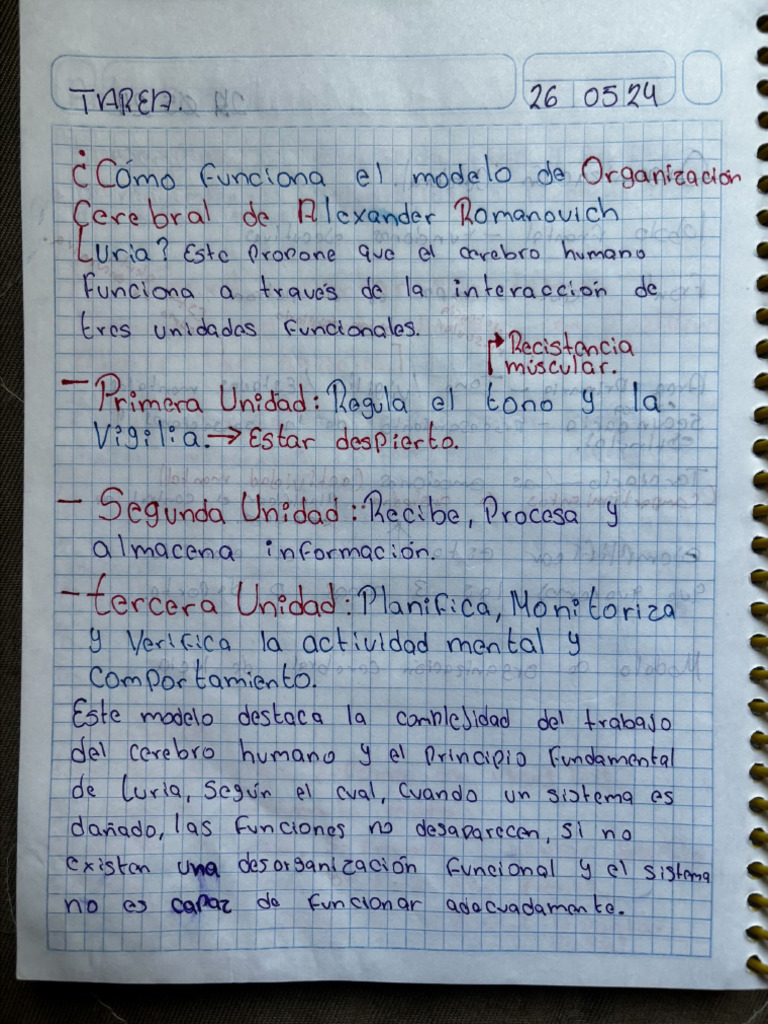 TAREA.
26 05 24
¿Cómo funciona el modelo de Organización
Cerebral de Alexander Romanovich
Luria? Este propone que el cerebro humano
funciona a través de la interacción de
tres unidades funcionales.
Recistencia
múscular.
- Primera Unidad: Regula el tono y la
Vigilia. → Estar despierto.
- Segunda Unidad: Recibe, Procesa y
almacena información.
- tercera Unidad: Planifica, Monitoriza
y Verifica la actividad mental y
comportamiento.
Este modelo destaca la complejidad del trabajo
del cerebro humano y el principio fundamental
de Luria, según el cual, cuando un sistema es
dañado, las funciones no desaparecen, si no
existen una desorganización funcional y el sistema
no es capaz de funcionar adecuadamente.